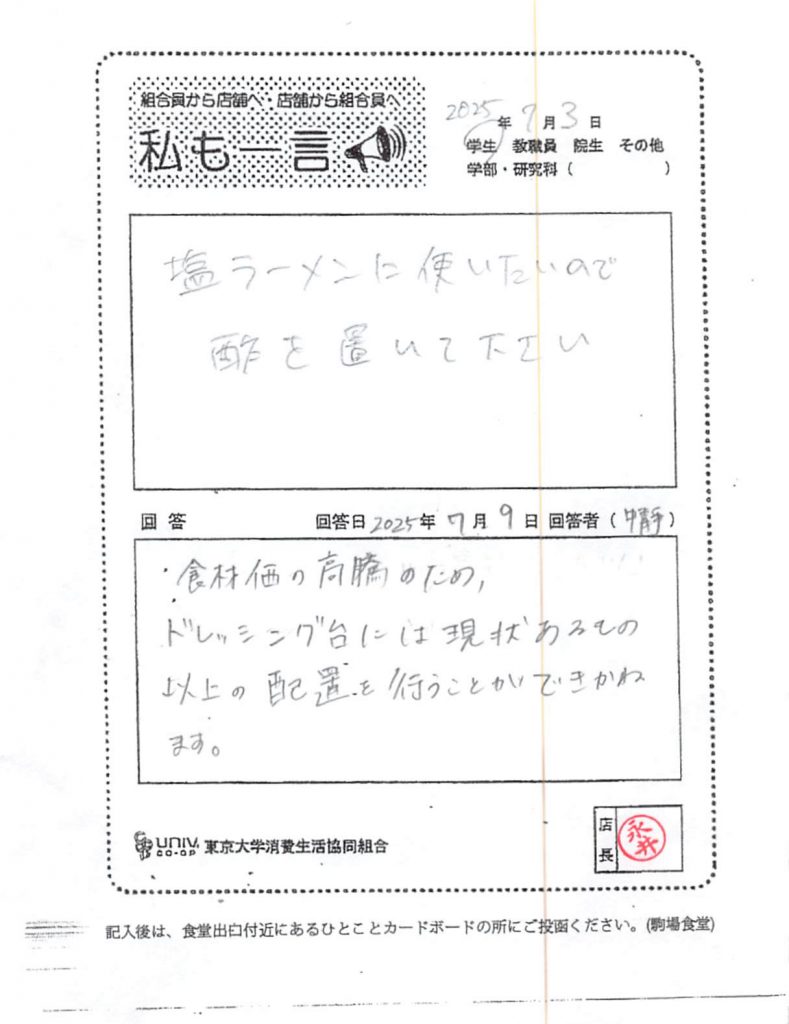 組合員から店舗へ・店舗から組合員へ
私も一言
2025年7月3日
学生 教職員 院生 その他
学部・研究科( )
塩ラーメンに使いたいので
酢を置いて下さい
回答 回答日2025年7月9日 回答者(中静)
・食材価の高騰のため,
ドレッシング台には現状あるもの
以上の配置を行うことができかね
ます。
UNIV. CO-OP 東京大学消費生活協同組合
店長 永井
記入後は、食堂出口付近にあるひとことカードボードの所にご投函ください。(駒場食堂)